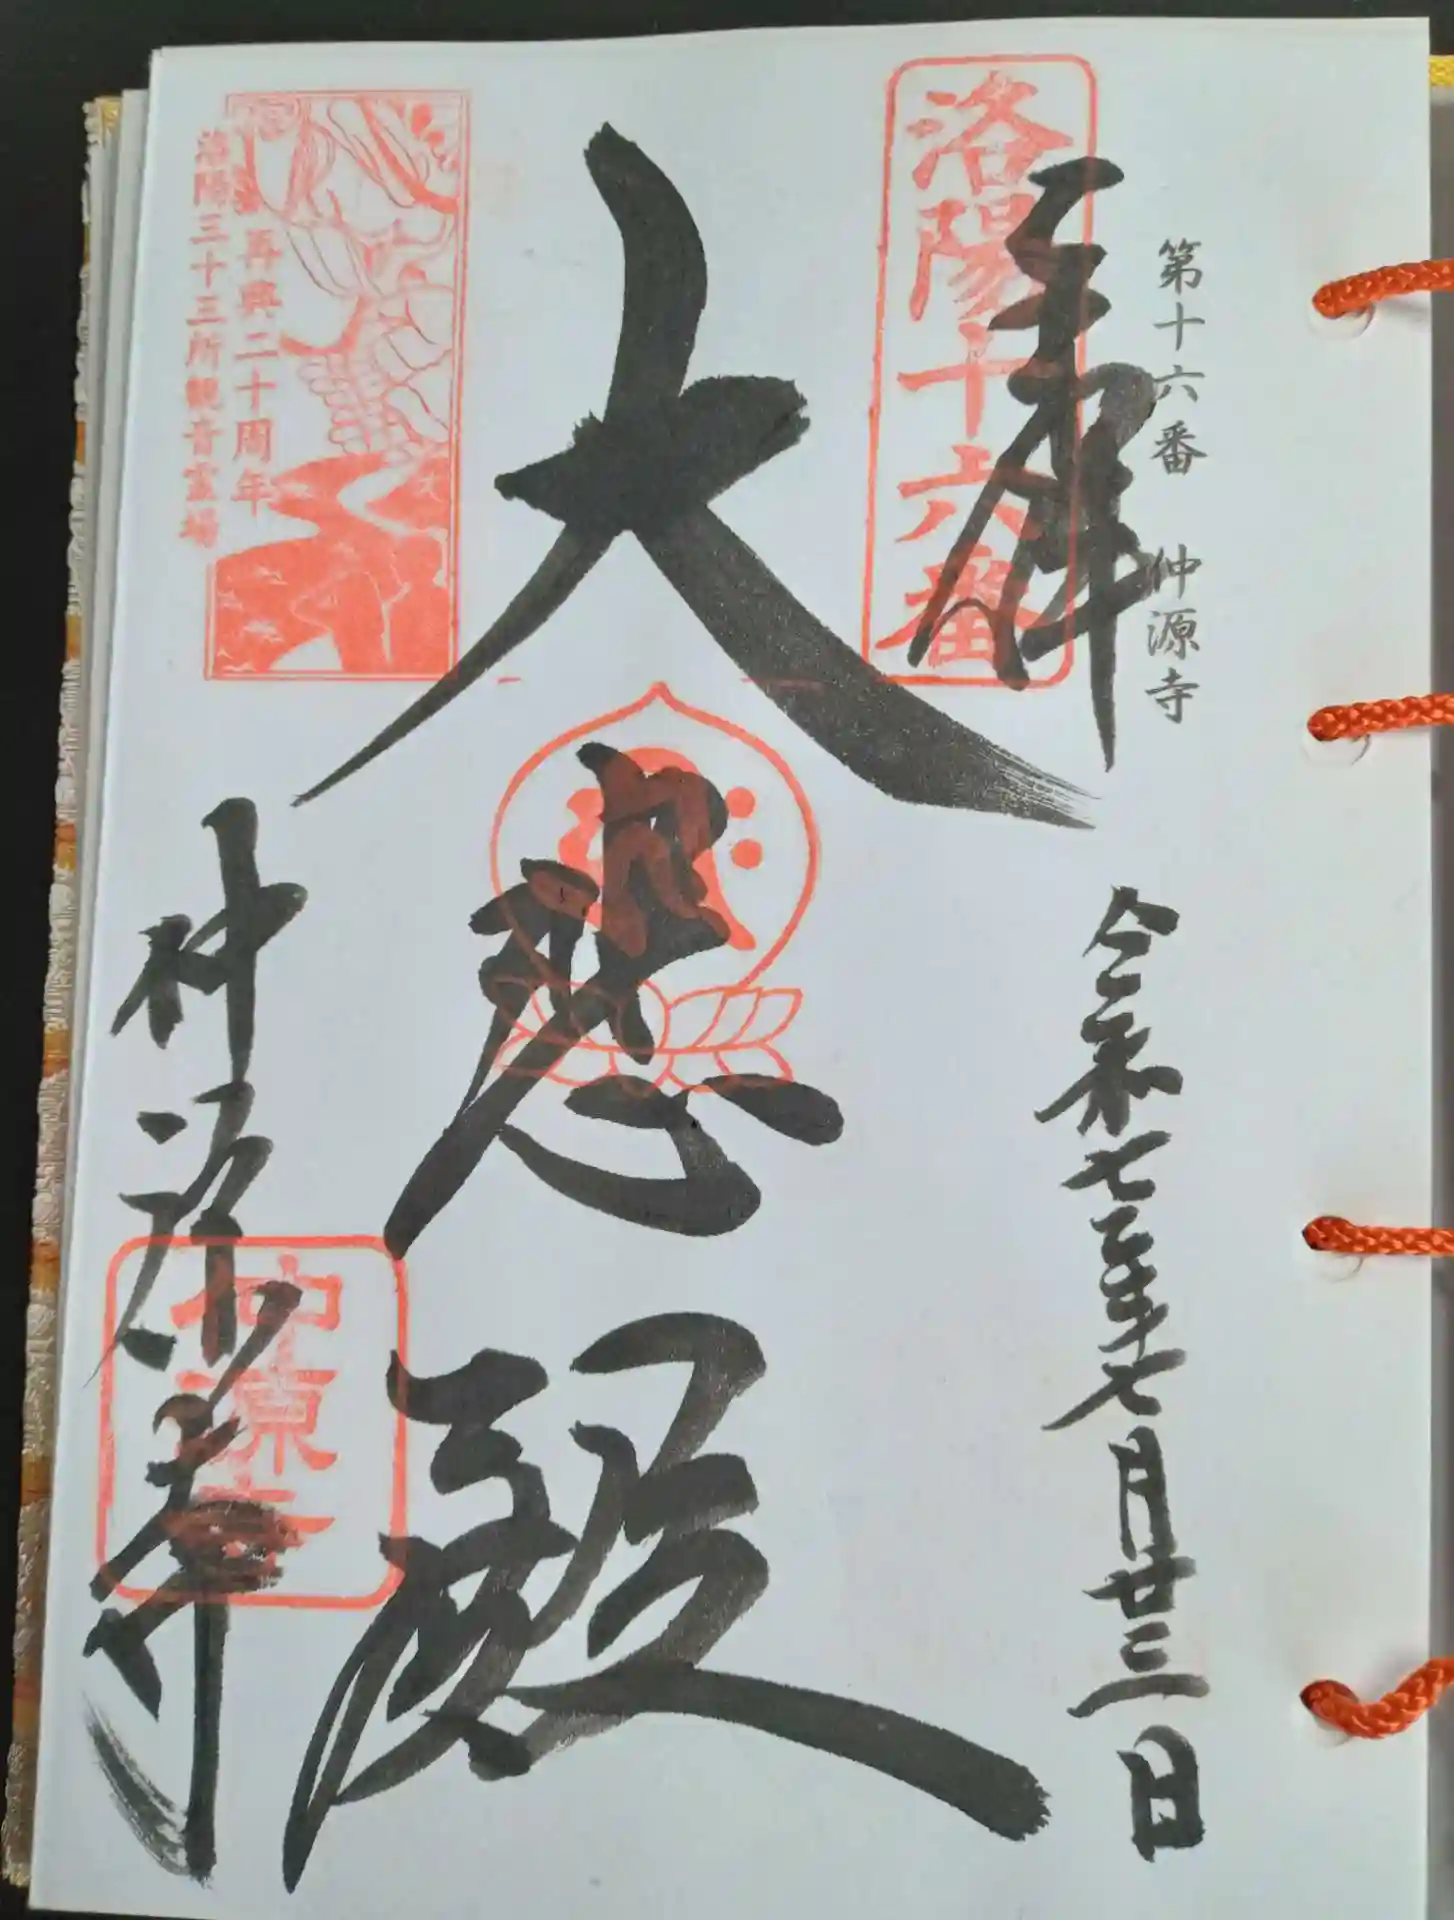 第十六番 仲源寺
奉拝
令和七年七月廿三日
洛陽十六番
大悲殿
再興二十周年
洛陽三十三所観音霊場
仲源寺
仲源寺